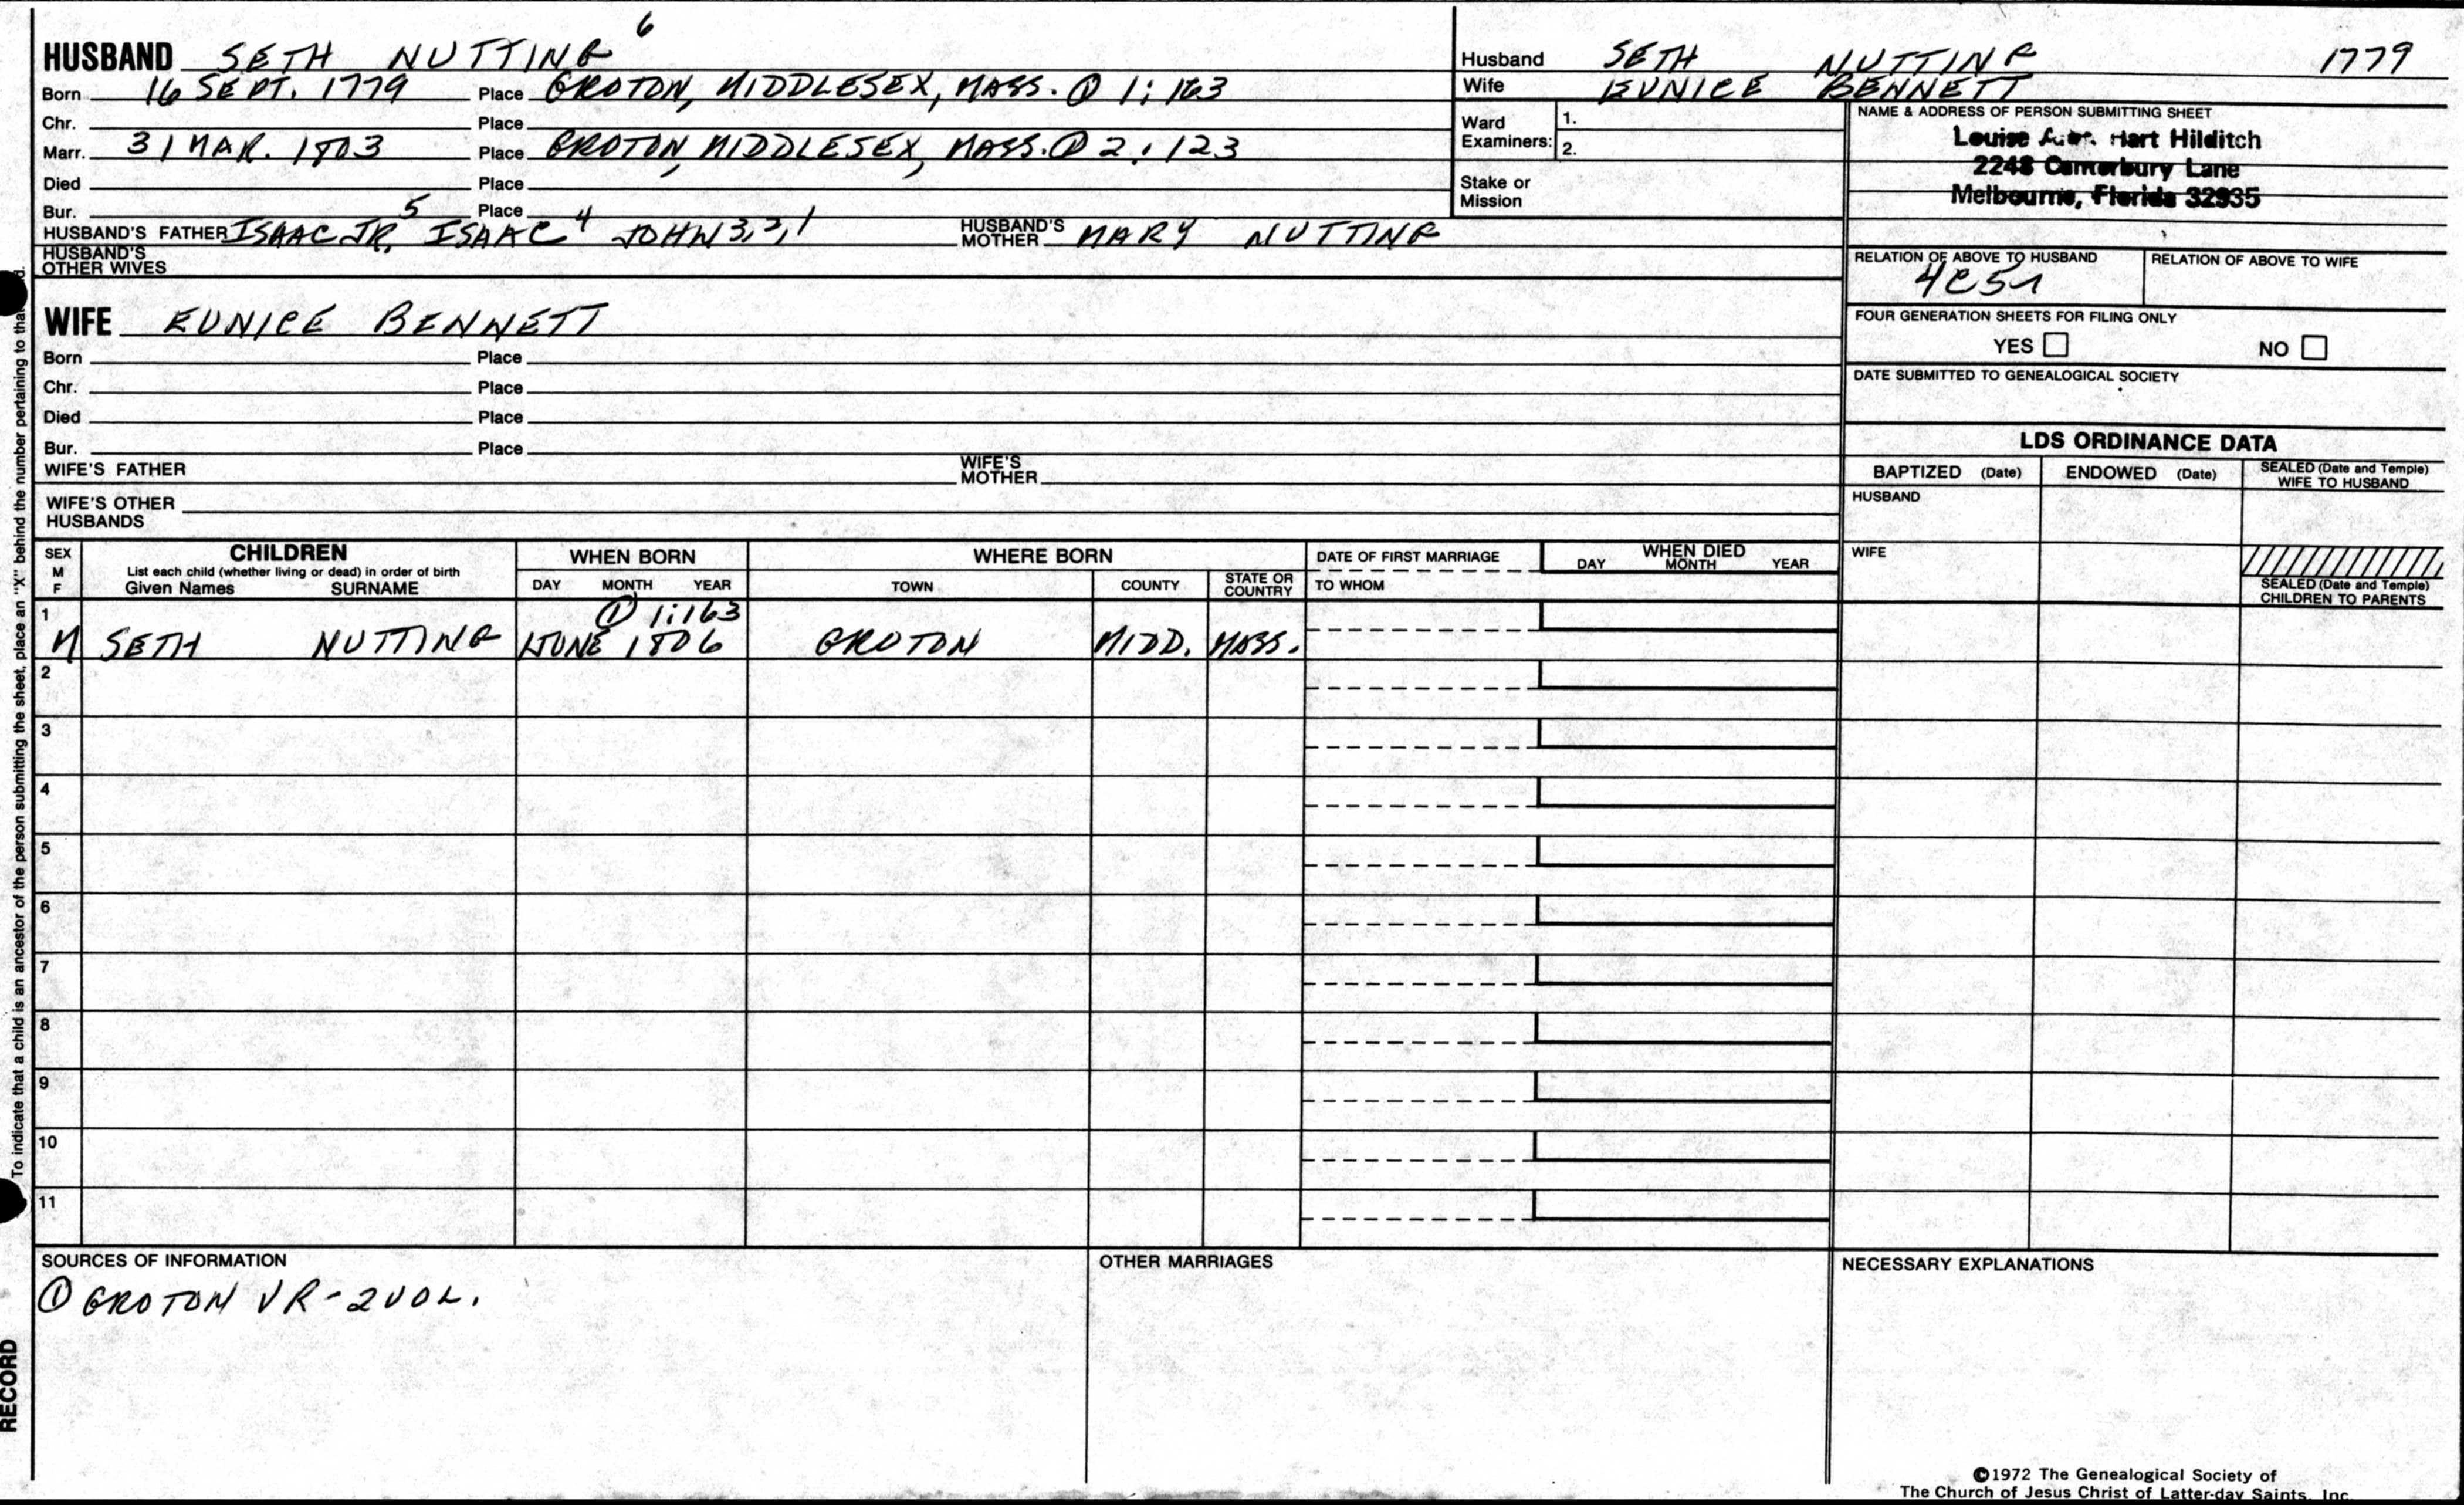 6
HUSBAND SETH NUTTING
Born 16 SEPT. 1779 Place GROTON, MIDDLESEX, MASS. ① 1:163
Chr. Place
Marr. 31 MAR. 1803 Place GROTON, MIDDLESEX, MASS. ① 2:123
Died Place
Bur. Place
HUSBAND'S FATHER ISAAC JR.5 ISAAC4 JOHN3,2,1 HUSBAND'S MOTHER MARY NUTTING
HUSBAND'S OTHER WIVES
Husband SETH NUTTING 1779
Wife EUNICE BENNETT
Ward Examiners: 1.
2.
Stake or Mission
NAME & ADDRESS OF PERSON SUBMITTING SHEET
Louise Hart Hilditch
2248 Canterbury Lane
Melbourne, Florida 32935
RELATION OF ABOVE TO HUSBAND RELATION OF ABOVE TO WIFE
4C5r
FOUR GENERATION SHEETS FOR FILING ONLY
YES NO
DATE SUBMITTED TO GENEALOGICAL SOCIETY
WIFE EUNICE BENNETT
Born Place
Chr. Place
Died Place
Bur. Place
WIFE'S FATHER WIFE'S MOTHER
WIFE'S OTHER HUSBANDS
LDS ORDINANCE DATA
BAPTIZED (Date) ENDOWED (Date) SEALED (Date and Temple) WIFE TO HUSBAND
HUSBAND
WIFE
SEALED (Date and Temple) CHILDREN TO PARENTS
SEX M F
CHILDREN
List each child (whether living or dead) in order of birth
Given Names SURNAME
WHEN BORN
DAY MONTH YEAR
WHERE BORN
TOWN COUNTY STATE OR COUNTRY
DATE OF FIRST MARRIAGE
TO WHOM
WHEN DIED
DAY MONTH YEAR
1 ① 1:163
M SETH NUTTING JUNE 1806 GROTON MIDD. MASS.
2
3
4
5
6
7
8
9
10
11
SOURCES OF INFORMATION
① GROTON VR-2VOL.
OTHER MARRIAGES
NECESSARY EXPLANATIONS
©1972 The Genealogical Society of
The Church of Jesus Christ of Latter-day Saints, Inc.
To indicate that a child is an ancestor of the person submitting the sheet, place an "X" behind the number pertaining to that
RECORD